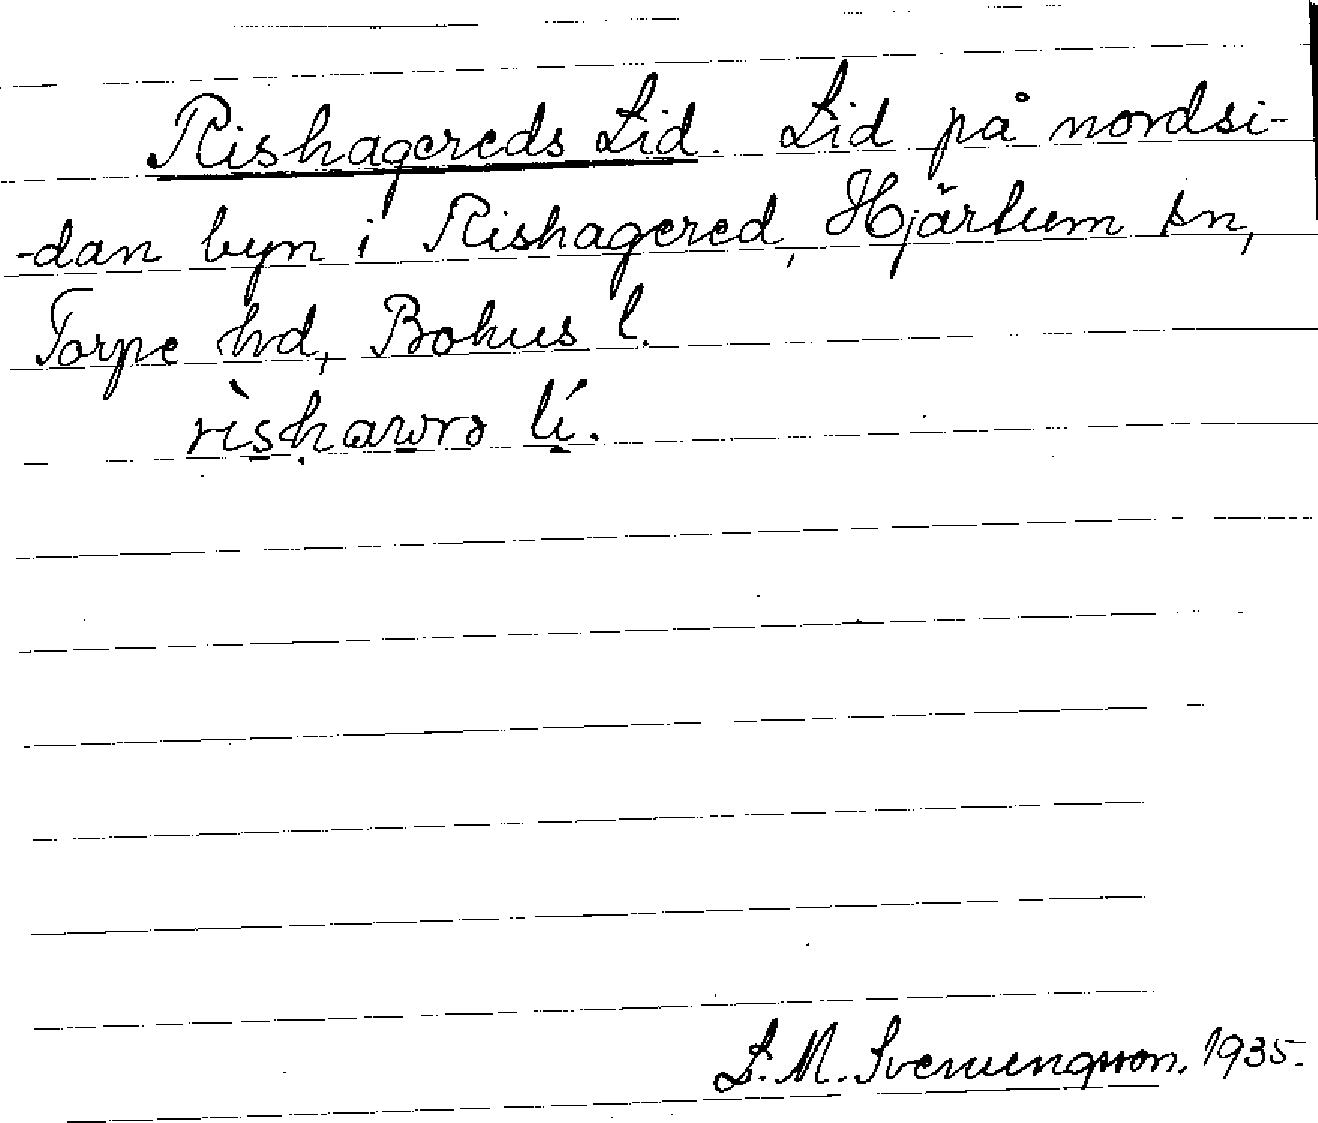 Rishagereds Lid. Lid på nordsi-
-dan byn i Rishagered, Hjärtum sn,
Torpe hd, Bohus l.
rìshawrə lí.
L. M. Svenungsson. 1935.